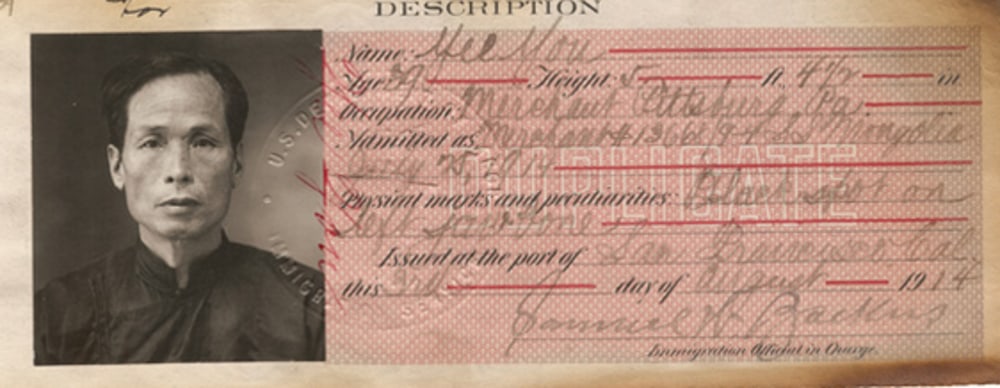 For
DESCRIPTION
Name: Yee You
Age: 39 Height: 5 ft. 4 1/2 in.
Occupation: Merchant Pittsburg, Pa.
Admitted as Merchant # 13669 Mongolia
25, 1914
Physical marks and peculiarities: Black spot on
left jawbone
DUPLICATE
Issued at the port of San Francisco Cal.
this 3rd day of August 1914
Samuel W Backus
Immigration Official in Charge.
U.S. DE
IMMIGR